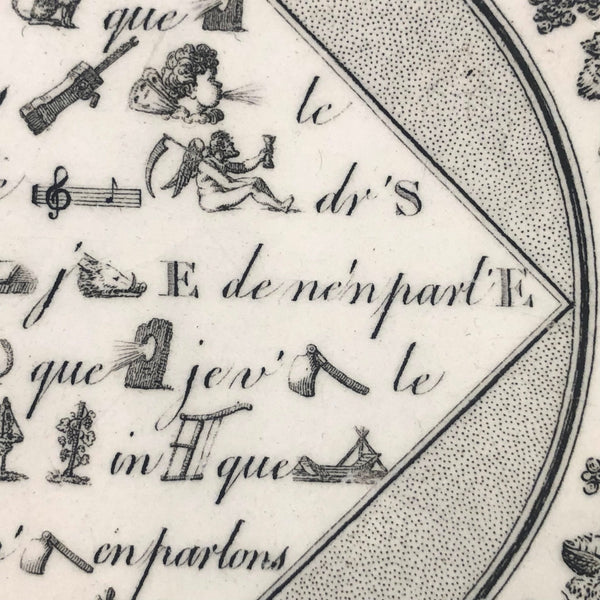 que
le
dr'S
j' E de ne'n parl'E
que je v' le
in que
en parlons